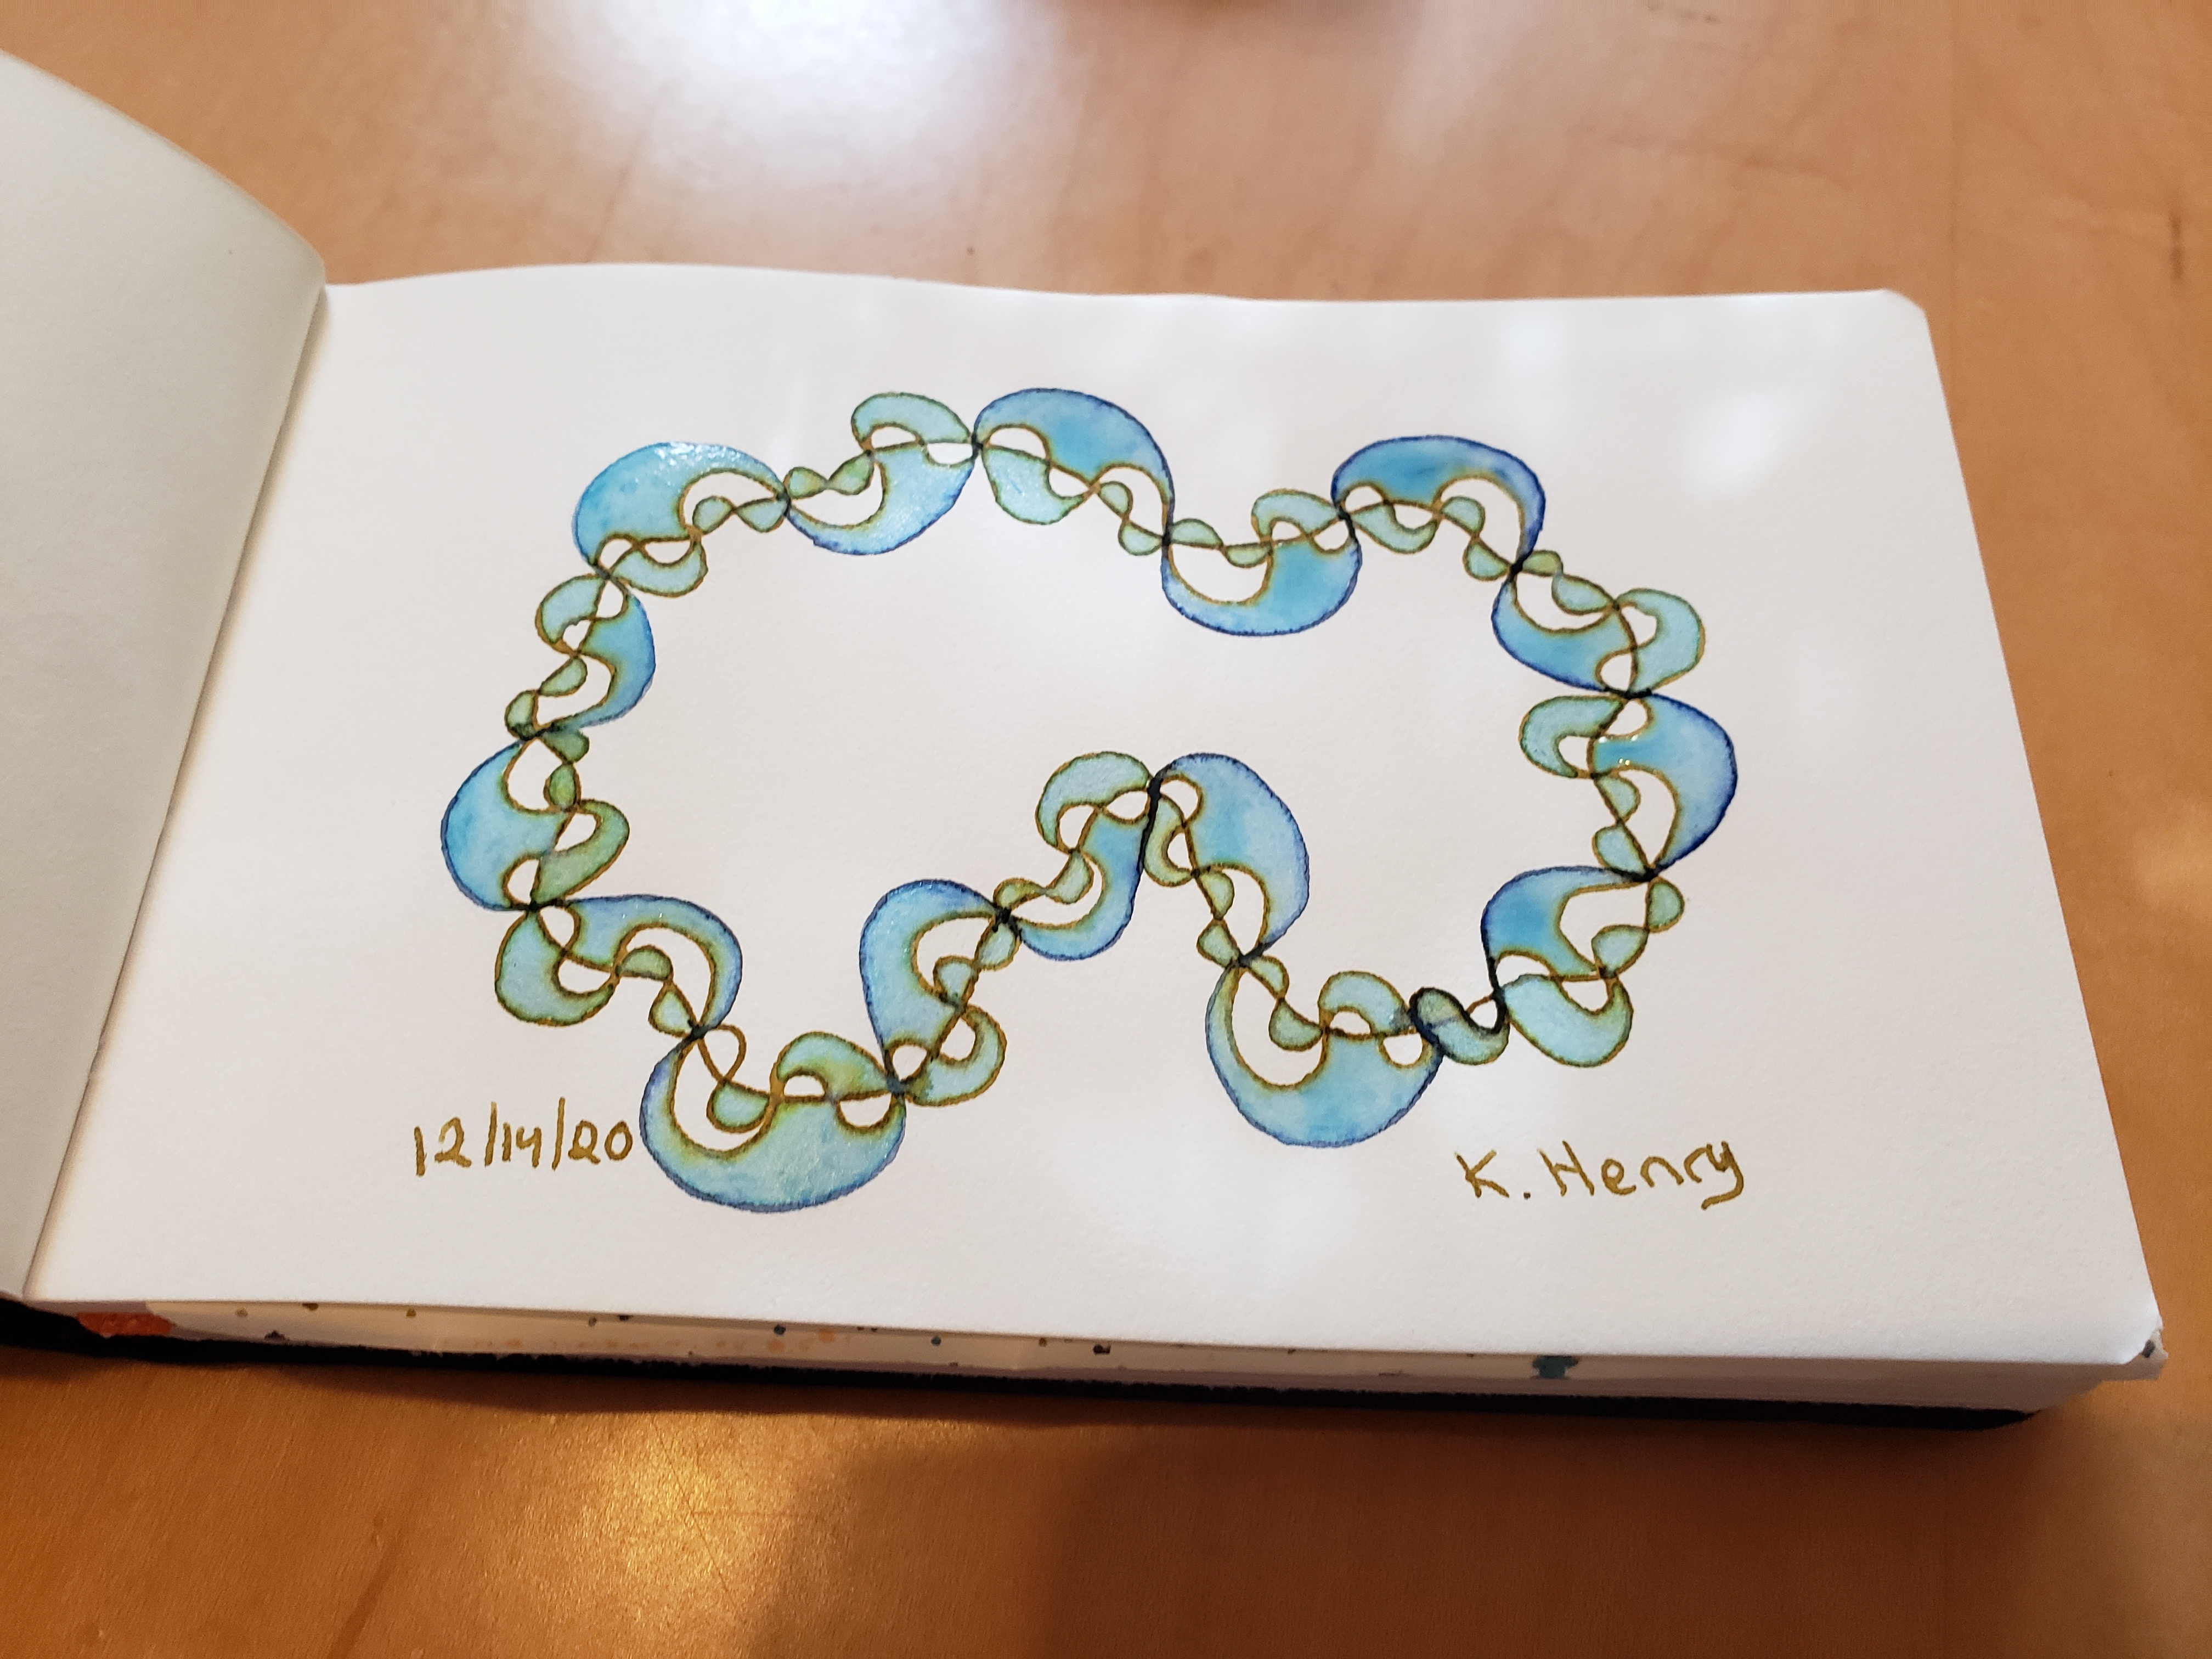 12/14/20
K. Henry